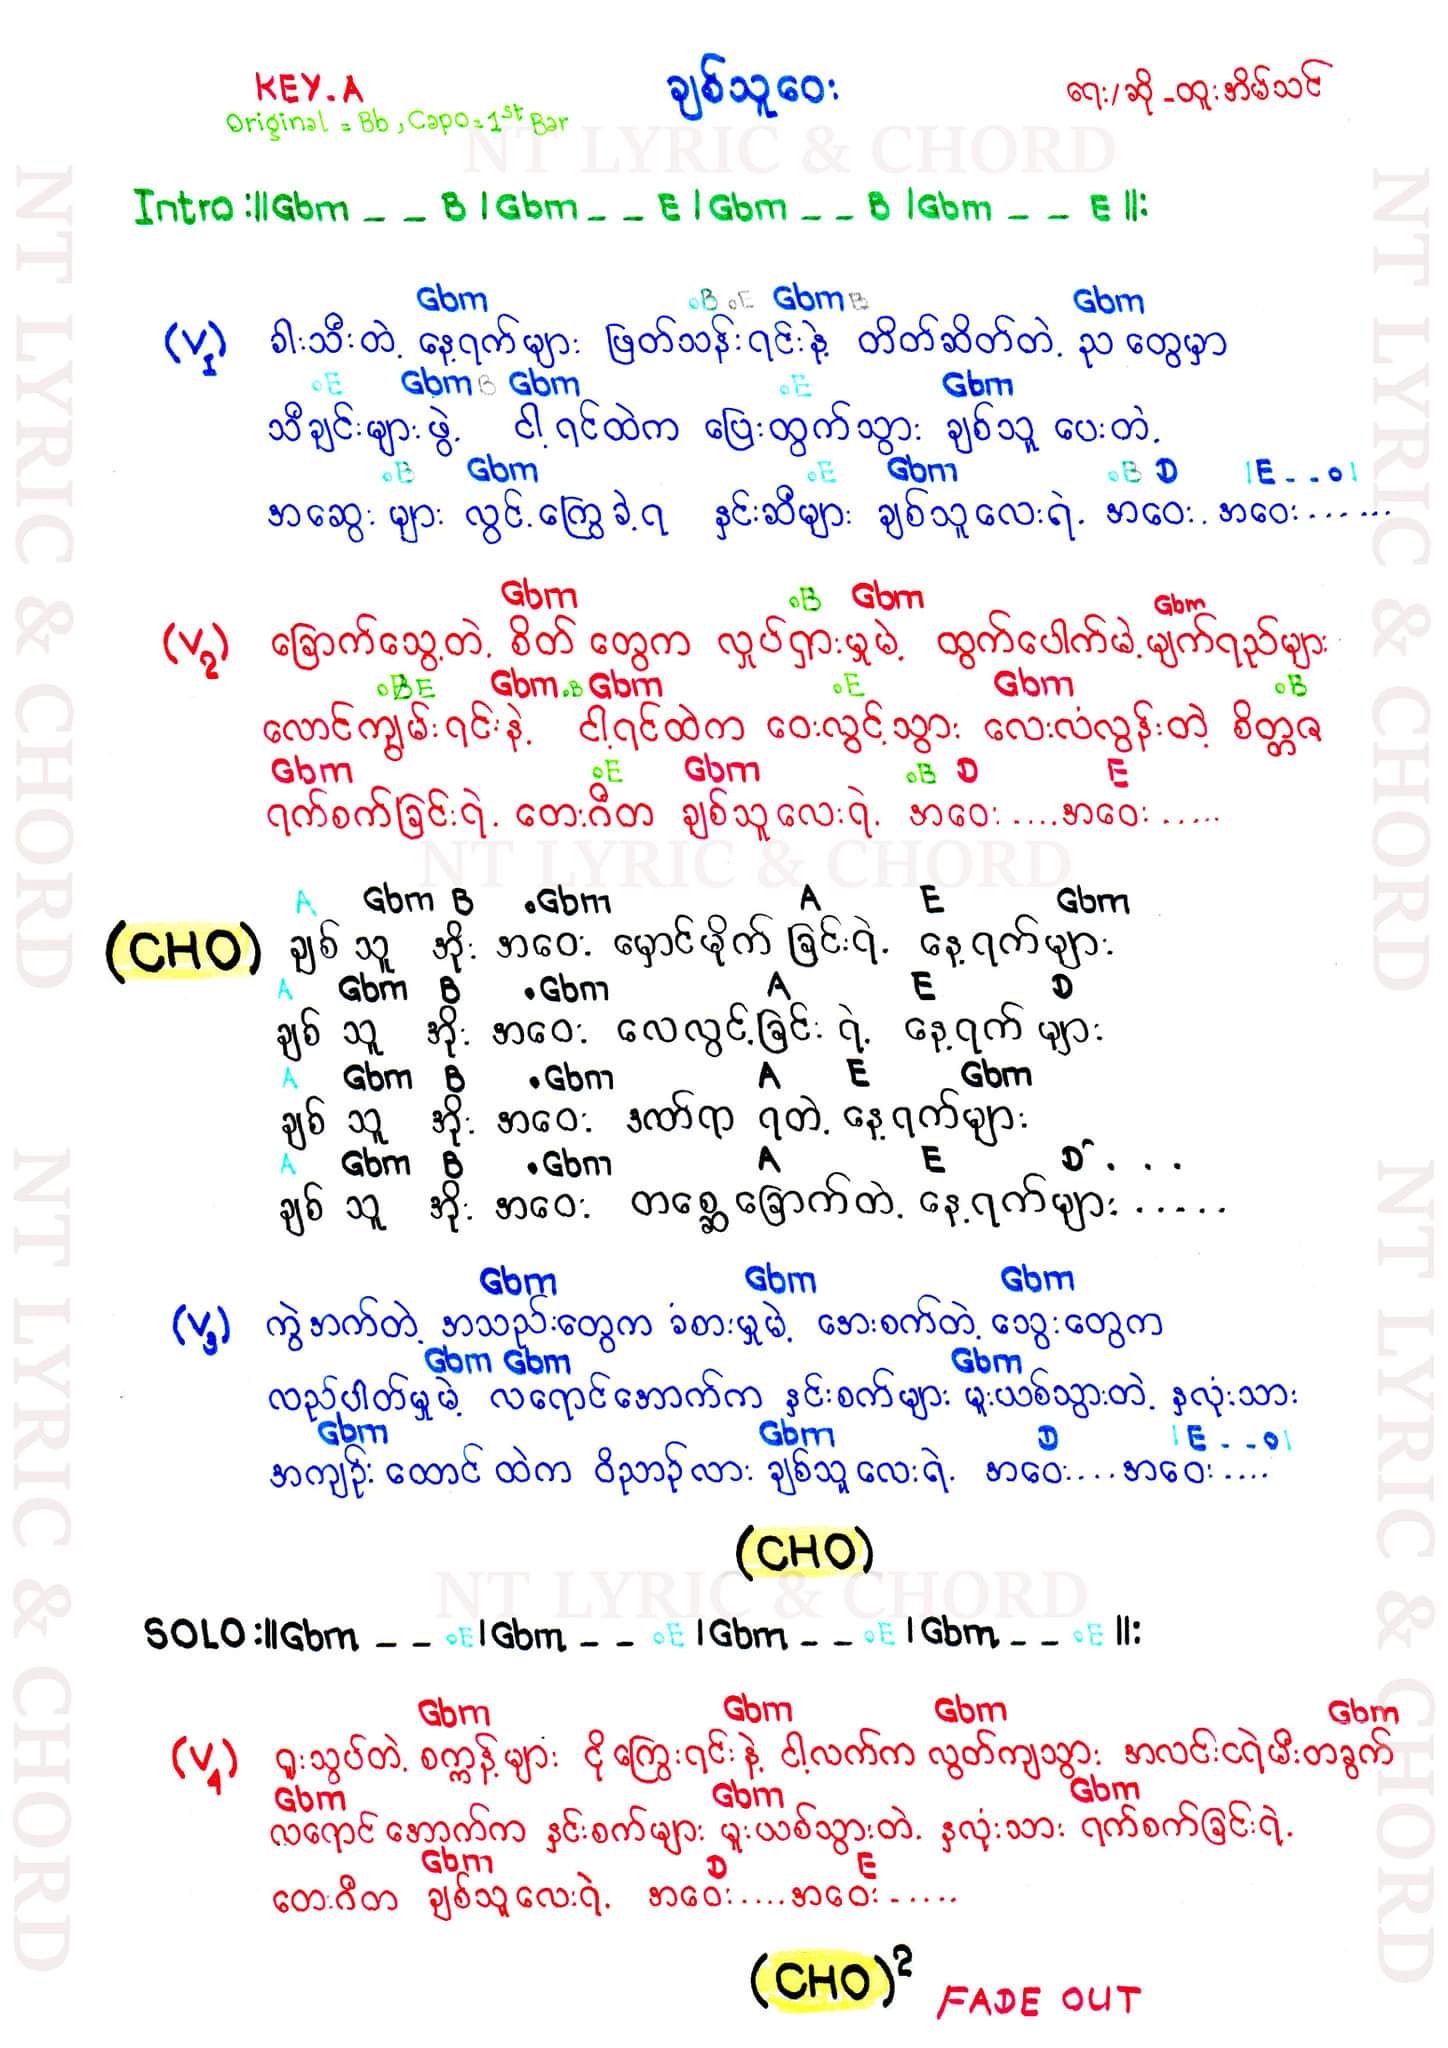 KEY.A ချစ်သူဝေး ရေး/ဆို - ထူးအိမ်သင်
Original = Bb, Capo = 1st Bar
NT LYRIC & CHORD
Intro :||Gbm _ _ B | Gbm _ _ E | Gbm _ _ B | Gbm _ _ E ||:
Gbm oB oE Gbm B Gbm
(V1) ခါးသီးတဲ့ နေ့ရက်များ ဖြတ်သန်းရင်းနဲ့ တိတ်ဆိတ်တဲ့ ည တွေမှာ
oE Gbm B Gbm oE Gbm
သီချင်းများဖွဲ့ ငါ့ရင်ထဲက ပြေးထွက်သွား ချစ်သူ ပေးတဲ့
oB Gbm oE Gbm oB D |E - - o|
အဆွေး များ လွင့်ကြွေခဲ့ရ နှင်းဆီများ ချစ်သူလေးရဲ့ အဝေး. အဝေး.......
Gbm oB Gbm Gbm
(V2) ခြောက်သွေ့တဲ့ စိတ် တွေက လှုပ်ရှားမှုမဲ့ ထွက်ပေါက်မဲ့ မျက်ရည်များ
oBE Gbm oB Gbm oE Gbm oB
လောင်ကျွမ်းရင်းနဲ့ ငါ့ရင်ထဲက ဝေးလွင့်သွား လေးလံလွန်းတဲ့ စိတ္တဇ
Gbm oE Gbm oB D E
ရက်စက်ခြင်းရဲ့ တေးဂီတ ချစ်သူလေးရဲ့ အဝေး....အဝေး.....
NT LYRIC & CHORD
A Gbm B .Gbm A E Gbm
(CHO) ချစ် သူ အိုး အဝေး မှောင်မိုက် ခြင်းရဲ့ နေ့ရက်များ
A Gbm B .Gbm A E D
ချစ် သူ အိုး အဝေး လေလွင့်ခြင်း ရဲ့ နေ့ရက် များ
A Gbm B .Gbm A E Gbm
ချစ် သူ အိုး အဝေး ဒဏ်ရာ ရတဲ့ နေ့ရက်များ
A Gbm B .Gbm A E D . . .
ချစ် သူ အိုး အဝေး တစ္ဆေခြောက်တဲ့ နေ့ရက်များ.....
Gbm Gbm Gbm
(V3) ကွဲအက်တဲ့ အသည်းတွေက ခံစားမှုမဲ့ အေးစက်တဲ့ သွေးတွေက
Gbm Gbm Gbm
လည်ပါတ်မှုမဲ့ လရောင်အောက်က နှင်းစက်များ မူးယစ်သွားတဲ့ နှလုံးသား
Gbm Gbm D |E - - o|
အကျဉ်း ထောင် ထဲက ဝိညာဉ်လား ချစ်သူလေးရဲ့ အဝေး....အဝေး....
(CHO)
NT LYRIC & CHORD
SOLO :||Gbm _ _ oE | Gbm _ _ oE | Gbm _ _ oE | Gbm _ _ oE ||:
Gbm Gbm Gbm Gbm
(V4) ရူးသွပ်တဲ့ စက္ကန့်များ ငိုကြွေးရင်းနဲ့ ငါ့လက်က လွတ်ကျသွား အလင်းငရဲမီးတခွက်
Gbm Gbm Gbm
လရောင် အောက်က နှင်းစက်များ မူးယစ်သွားတဲ့ နှလုံးသား ရက်စက်ခြင်းရဲ့
Gbm D E
တေးဂီတ ချစ်သူလေးရဲ့ အဝေး....အဝေး.....
(CHO)2 FADE OUT
NT LYRIC & CHORD
NT LYRIC & CHORD
NT LYRIC & CHORD
NT LYRIC & CHORD